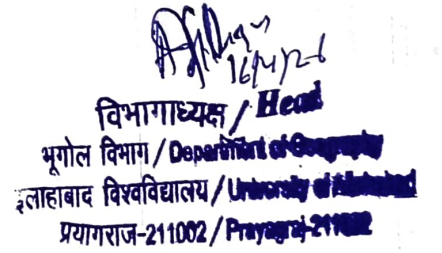 16/4/26
विभागाध्यक्ष / Head
भूगोल विभाग / Department of Geography
इलाहाबाद विश्वविद्यालय / University of Allahabad
प्रयागराज-211002 / Prayagraj-211002